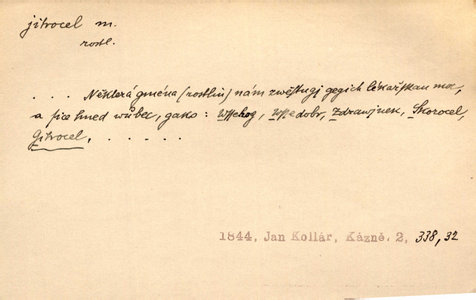 jitrocel m.
rostl.
. . . Některá gména (rostlin) nám zwěstugj gegich lékařskau moc,
a sice hned wůbec, gako: Wssehog, Wssedobr, Zdrawjnek, Skorocel,
Gitrocel, . . . . .
1844, Jan Kollár, Kázně. 2, 338,32